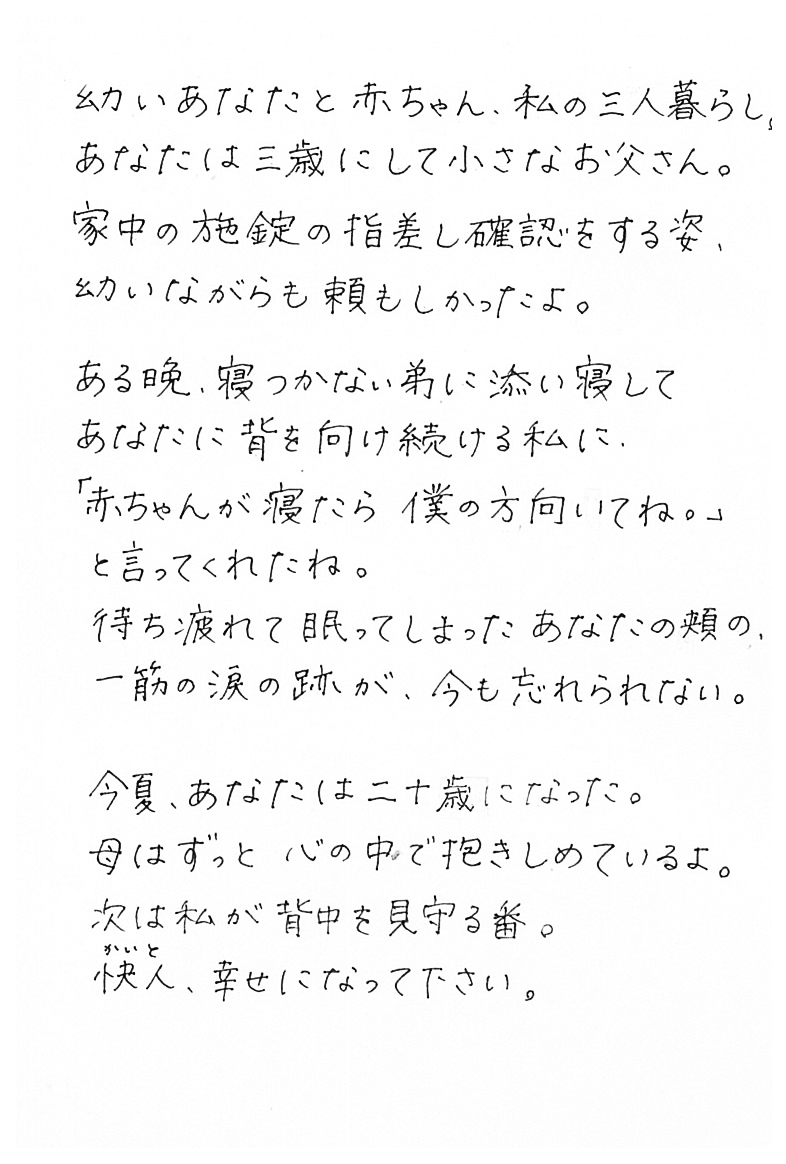 幼いあなたと赤ちゃん、私の三人暮らし。
あなたは三歳にして小さなお父さん。
家中の施錠の指差し確認をする姿、
幼いながらも頼もしかったよ。
ある晩、寝つかない弟に添い寝して
あなたに背を向け続ける私に、
「赤ちゃんが寝たら 僕の方向いてね。」
と言ってくれたね。
待ち疲れて眠ってしまったあなたの頬の、
一筋の涙の跡が、今も忘れられない。
今夏、あなたは二十歳になった。
母はずっと 心の中で抱きしめているよ。
次は私が背中を見守る番。
かいと
快人、幸せになって下さい。